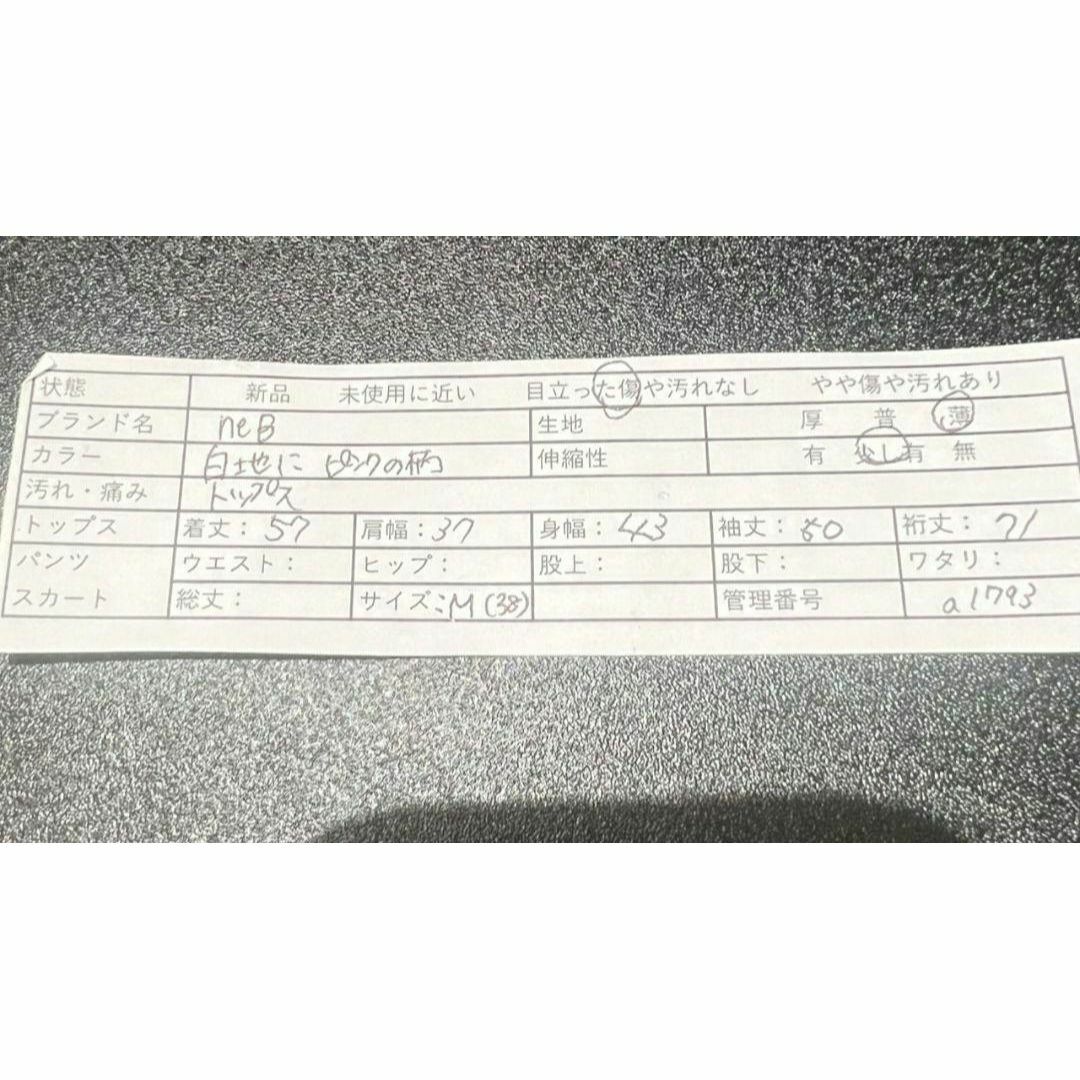 状態 新品 未使用に近い 目立った傷や汚れなし やや傷や汚れあり
ブランド名 neB 生地 厚 普 薄
カラー 白地に ピンクの柄 伸縮性 有 少し有 無
汚れ・痛み トップス
トップス 着丈：57 肩幅：37 身幅：43 袖丈： 裄丈：71
パンツ ウエスト： ヒップ： 股上： 股下： ワタリ：
スカート 総丈： サイズ：M(38) 管理番号 a1793